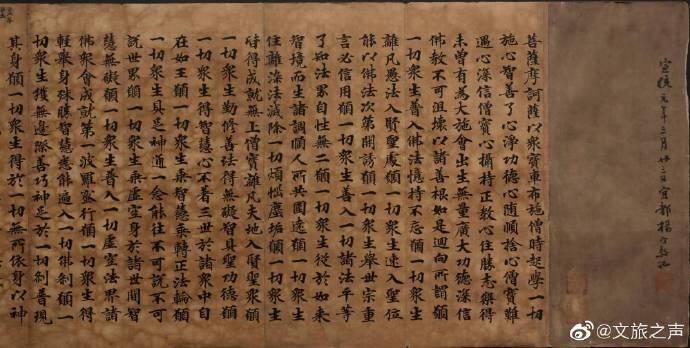 宣統元年三月廿三日宜都楊守敬記
菩薩摩訶薩以衆寶車布施僧時起學一切
施心智善了心淨功德心随順捨心僧寶難
遇心深信僧寶心攝持正教心住勝志樂得
未曾有為大施會出生無量廣大功德深信
佛教不可沮壞以諸善根如是迴向所謂願
一切衆生普入佛法憶持不忘願一切衆生
離凡愚法入賢聖處願一切衆生速入聖位
能以佛法次第開誘願一切衆生舉世宗重
言必信用願一切衆生善入一切諸法平等
了知法界自性無二願一切衆生從於如來
智境而生諸調順人所共圍遶願一切衆生
住離染法滅除一切煩惱塵垢願一切衆生
皆得成就無上僧寶離凡夫地入賢聖衆願
一切衆生勤修善法得無礙智具聖功德願
一切衆生得智慧心不著三世於諸衆中自
在如王願一切衆生乘智慧乘轉正法輪願
一切衆生具足神通一念能往不可説不可
説世界願一切衆生乘虛空身於諸世間智
慧無礙願一切衆生普入一切虛空法界諸
佛衆會成就第一波羅蜜行願一切衆生得
輕舉身殊勝智慧悉能遍入一切佛剎願一
切衆生獲無邊際善巧神足於一切剎普現
其身願一切衆生得於一切無所依身以神
@文旅之声